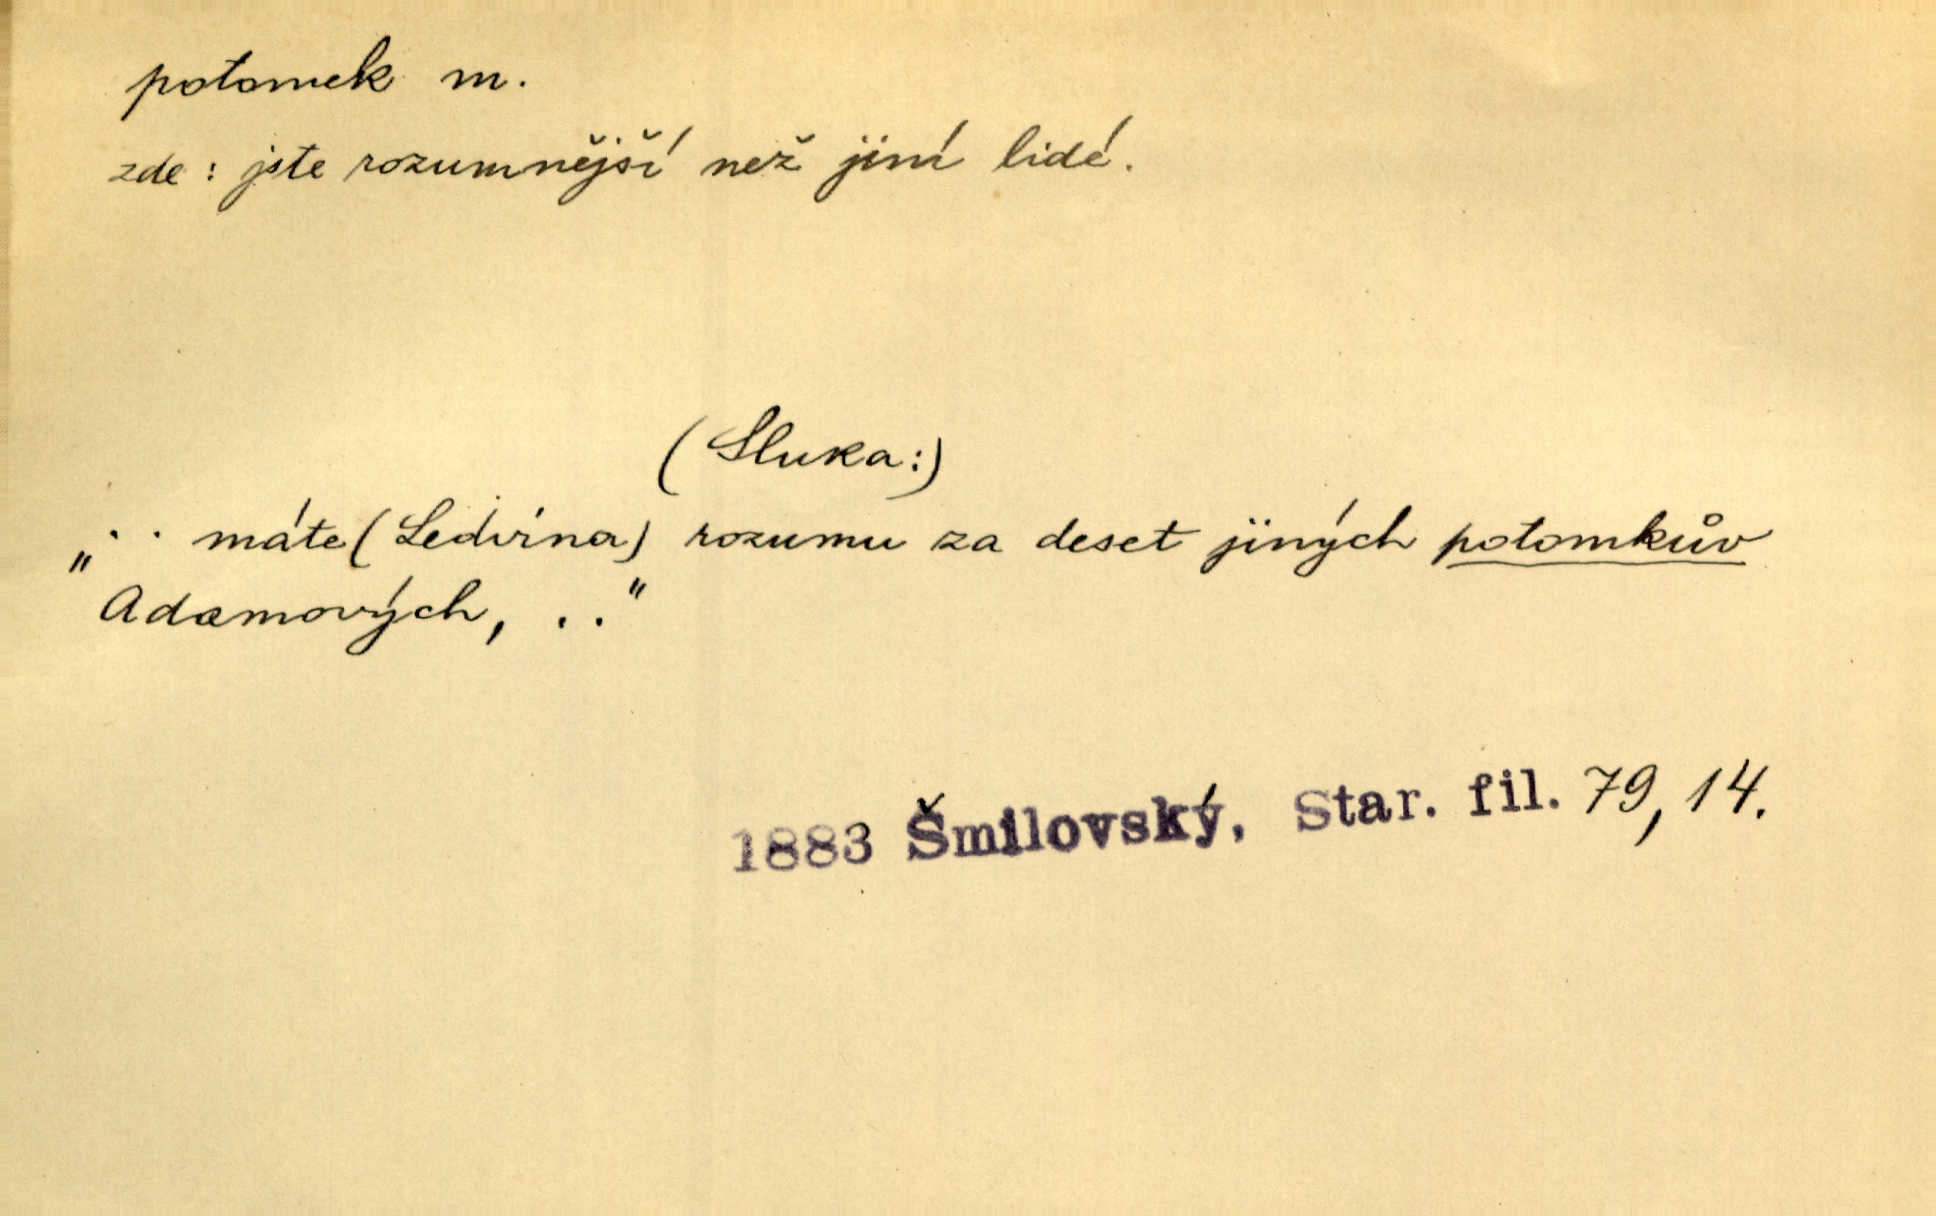 potomek m.
zde : jste rozumnější než jiní lidé.
(Sluka:)
„ . . máte (Ledvina) rozumu za deset jiných potomkův
Adamových, . ."
1883 Šmilovský, Star. fil. 79, 14.